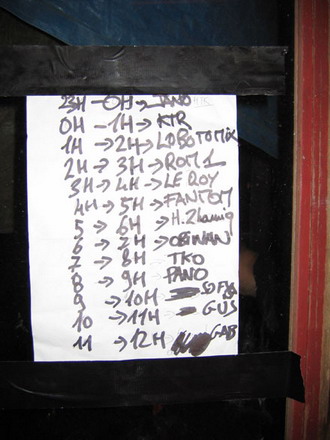 23H - 0H → JANO
0H - 1H → KTR
1H → 2H → LOBOTOMIK
2H → 3H → ROM1
3H → 4H → LE ROY
4H → 5H → FANTOM
5 → 6H → H.
6 → 7H → OBIWAN
7 → 8H TKO
8 → 9H PANO
9 → 10H
10 → 11H GUS
11 → 12H GAB